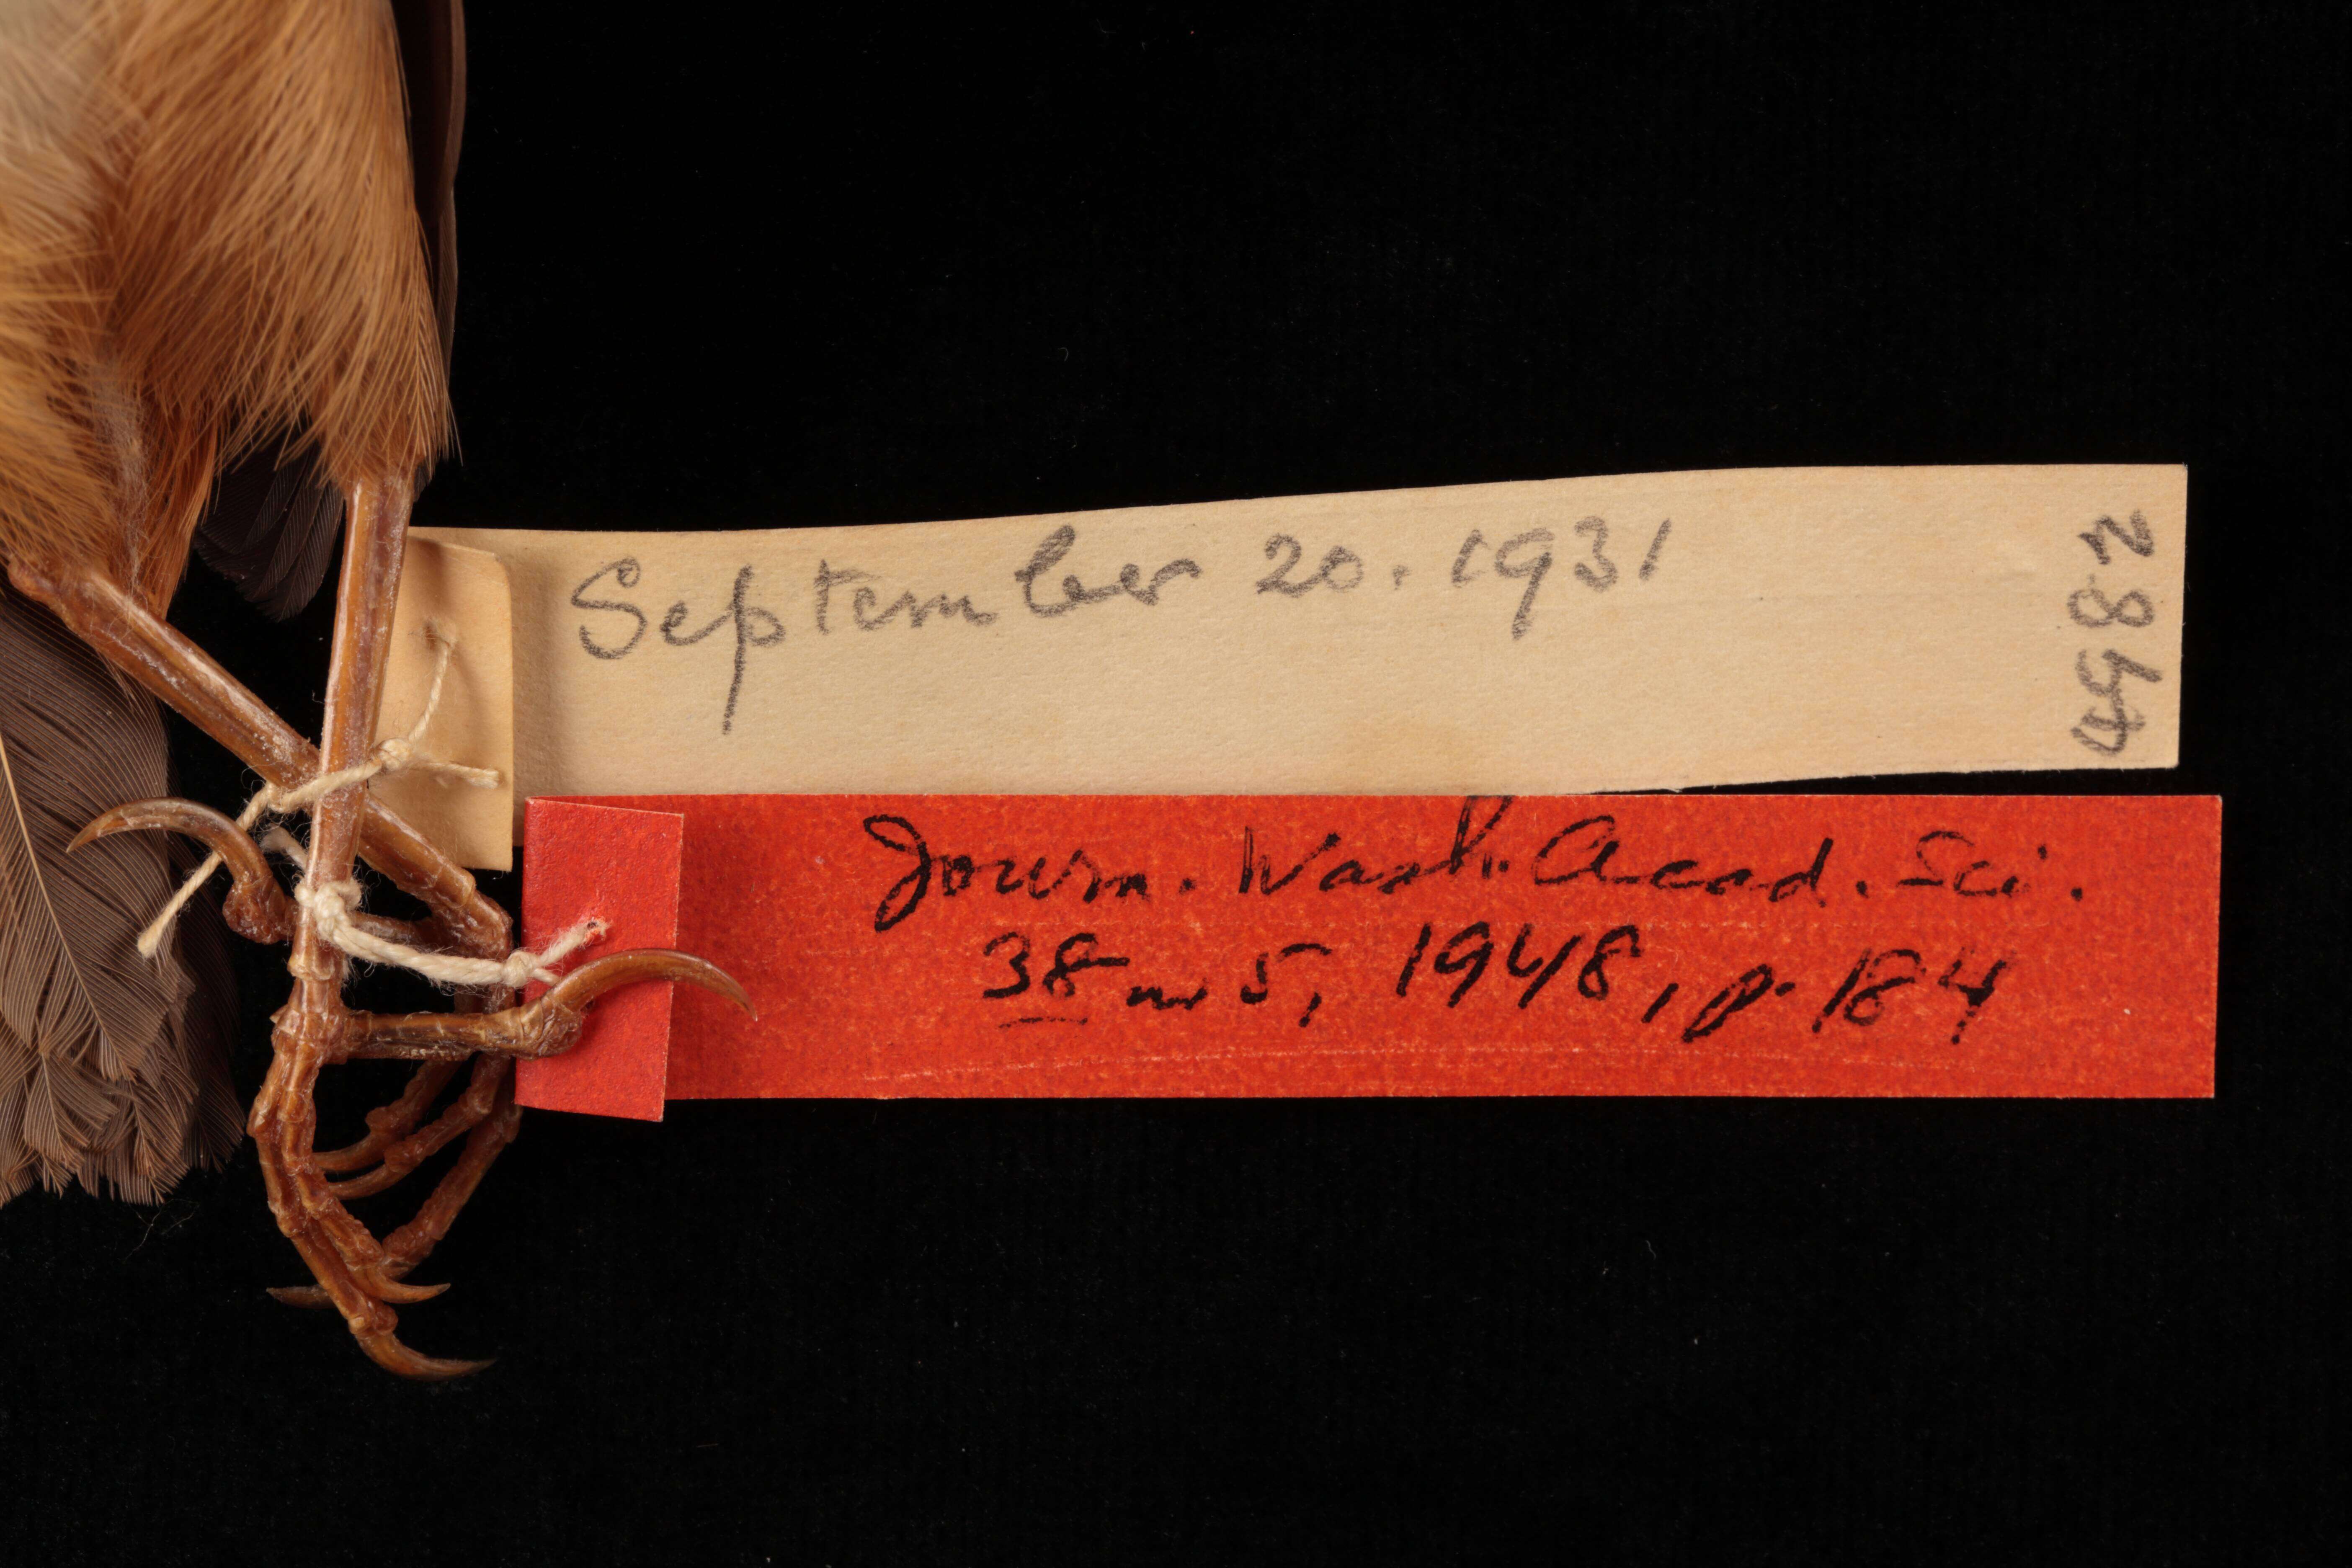 September 20. 1931
4982
Journ. Wash. Acad. Sci.
38 no 5, 1948, p. 184